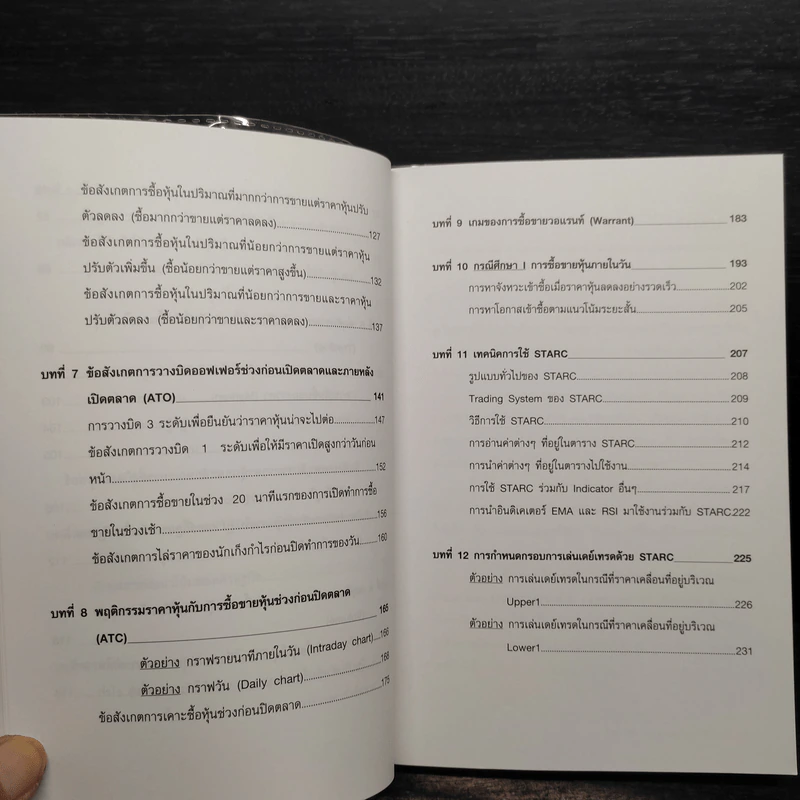 ข้อสังเกตการซื้อหุ้นในปริมาณที่มากกว่าการขายแต่ราคาหุ้นปรับ
ตัวลดลง (ซื้อมากกว่าขายแต่ราคาลดลง)..........127
ข้อสังเกตการซื้อหุ้นในปริมาณที่น้อยกว่าการขายแต่ราคาหุ้น
ปรับตัวเพิ่มขึ้น (ซื้อน้อยกว่าขายแต่ราคาสูงขึ้น)..........132
ข้อสังเกตการซื้อหุ้นในปริมาณที่น้อยกว่าการขายและราคาหุ้น
ปรับตัวลดลง (ซื้อน้อยกว่าขายและราคาลดลง)..........137
บทที่ 7 ข้อสังเกตการวางบิดออฟเฟอร์ช่วงก่อนเปิดตลาดและภายหลัง
เปิดตลาด (ATO)__________141
การวางบิด 3 ระดับเพื่อยืนยันว่าราคาหุ้นน่าจะไปต่อ..........147
ข้อสังเกตการวางบิด 1 ระดับเพื่อให้มีราคาเปิดสูงกว่าวันก่อน
หน้า..........152
ข้อสังเกตการซื้อขายในช่วง 20 นาทีแรกของการเปิดทำการซื้อ
ขายในช่วงเช้า..........156
ข้อสังเกตการไล่ราคาของนักเก็งกำไรก่อนปิดทำการของวัน..........160
บทที่ 8 พฤติกรรมราคาหุ้นกับการซื้อขายหุ้นช่วงก่อนปิดตลาด
(ATC)__________165
ตัวอย่าง กราฟรายนาทีภายในวัน (Intraday chart)..........166
ตัวอย่าง กราฟวัน (Daily chart)..........168
ข้อสังเกตการเคาะซื้อหุ้นช่วงก่อนปิดตลาด..........175
บทที่ 9 เกมของการซื้อขายวอแรนท์ (Warrant)__________183
บทที่ 10 กรณีศึกษา I การซื้อขายหุ้นภายในวัน__________193
การหาจังหวะเข้าซื้อเมื่อราคาหุ้นลดลงอย่างรวดเร็ว..........202
การหาโอกาสเข้าซื้อตามแนวโน้มระยะสั้น..........205
บทที่ 11 เทคนิคการใช้ STARC__________207
รูปแบบทั่วไปของ STARC..........208
Trading System ของ STARC..........209
วิธีการใช้ STARC..........210
การอ่านค่าต่างๆ ที่อยู่ในตาราง STARC..........212
การนำค่าต่างๆ ที่อยู่ในตารางไปใช้งาน..........214
การใช้ STARC ร่วมกับ Indicator อื่นๆ..........217
การนำอินดิเคเตอร์ EMA และ RSI มาใช้งานร่วมกับ STARC.222
บทที่ 12 การกำหนดกรอบการเล่นเดย์เทรดด้วย STARC__________225
ตัวอย่าง การเล่นเดย์เทรดในกรณีที่ราคาเคลื่อนที่อยู่บริเวณ
Upper1..........226
ตัวอย่าง การเล่นเดย์เทรดในกรณีที่ราคาเคลื่อนที่อยู่บริเวณ
Lower1..........231